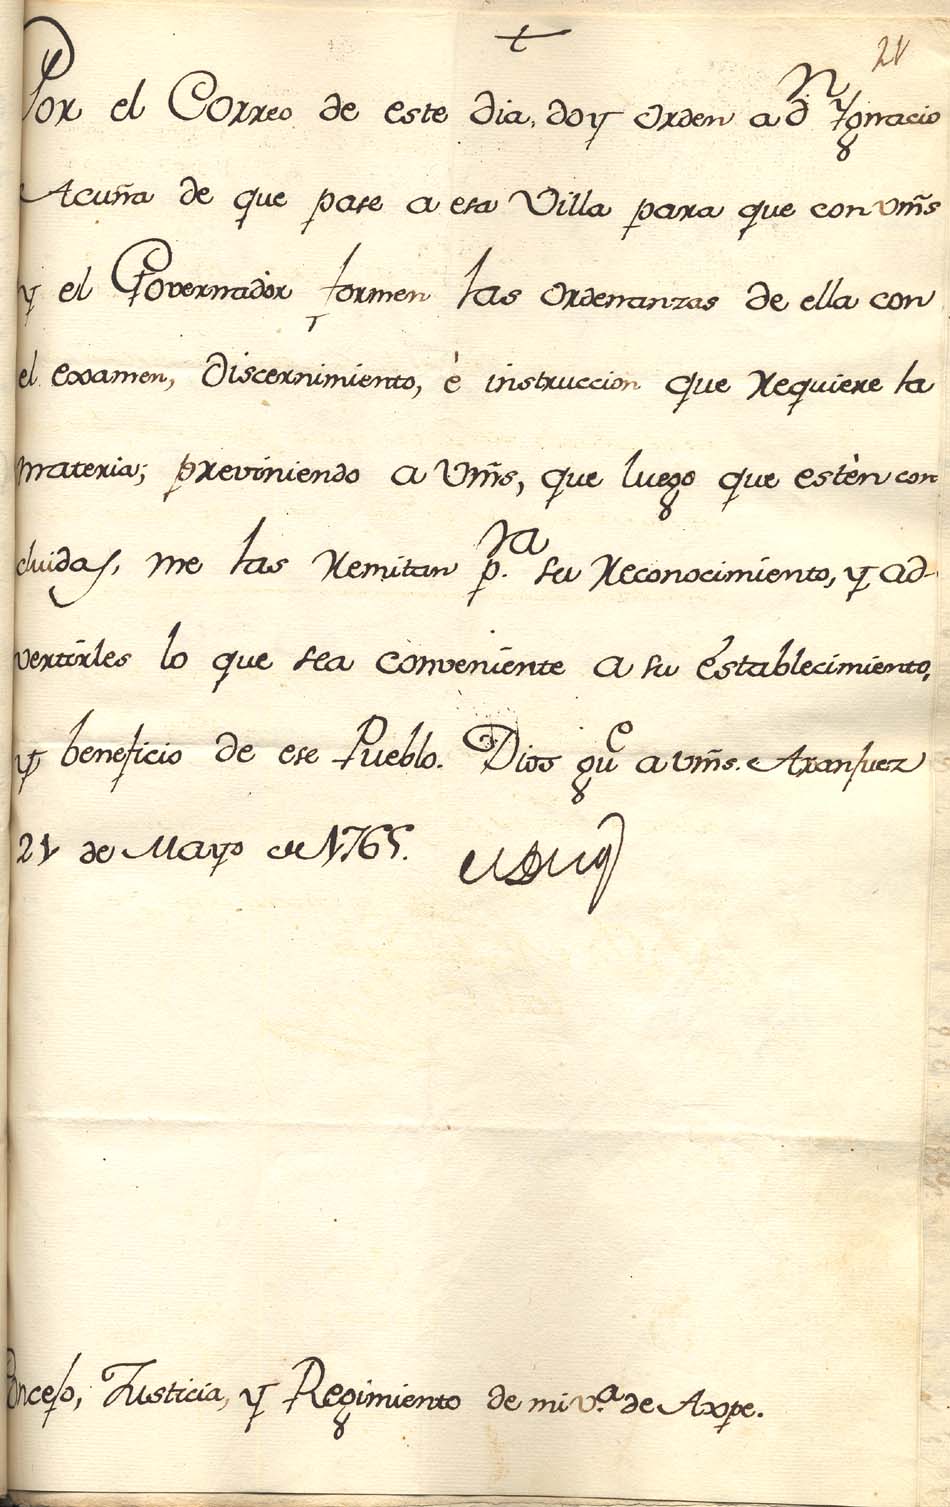 21
Por el Correo de este dia, doy orden a dn Ygnacio
Acuña de que pase a esa Villa para que con vm̃s
y el Governador formen las ordenanzas de ella con
el examen, discernimiento, è instruccion que requiere la
materia; previniendo a Vm̃s, que luego que estèn con
cluidas, me las remitan p.ra su reconocimiento, y ad-
vertirles lo que sea conveniente a su establecimiento,
y beneficio de ese Pueblo. Dios gue a vm̃s. Aranjuez
21 de Mayo de 1765.
Concejo, Justicia, y Regimiento de mi v.a de Axpe.